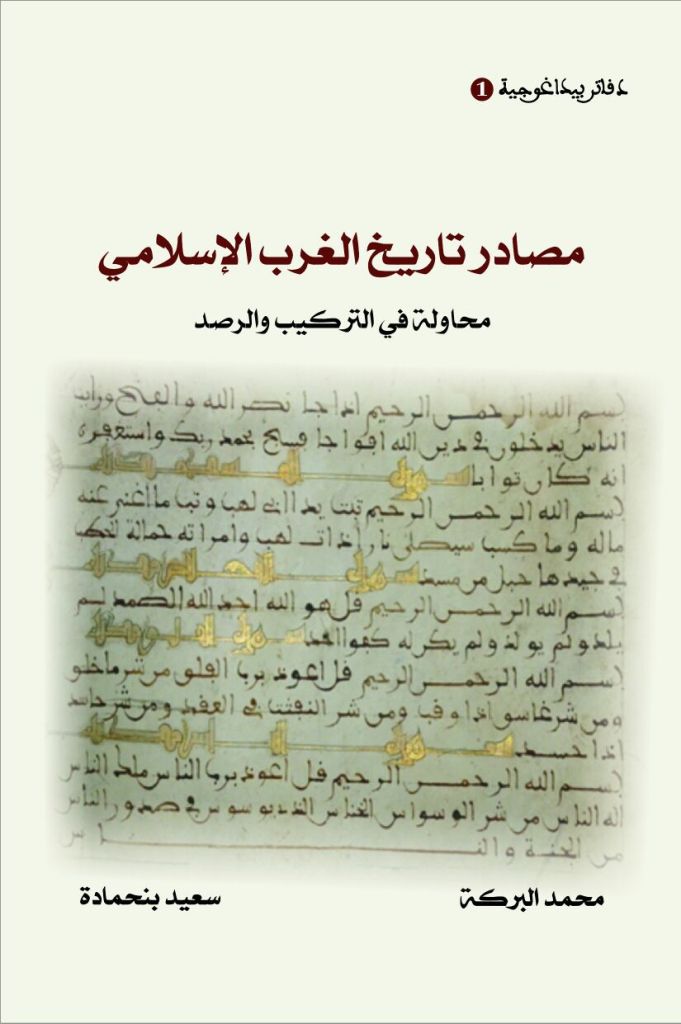 دفاتر بيداغوجية 1
مصادر تاريخ الغرب الإسلامي
محاولة في التركيب والرصد
بسم الله الرحمن الرحيم اذا جا نصر الله والفتح ورايت
الناس يدخلون في دين الله افواجا فسبح بحمد ربك واستغفره
انه كان توابا سورة
بسم الله الرحمن الرحيم تبت يدا ابي لهب وتب ما اغنى عنه
ماله وما كسب سيصلى نارا ذات لهب وامراته حمالة الحطب
في جيدها حبل من مسد سورة الاخلاص
بسم الله الرحمن الرحيم قل هو الله احد الله الصمد لم
يلد ولم يولد ولم يكن له كفوا احد سورة الفلق
بسم الله الرحمن الرحيم قل اعوذ برب الفلق من شر ما خلق
ومن شر غاسق اذا وقب ومن شر النفثت في العقد ومن شر حاسد
اذا حسد سورة الناس
بسم الله الرحمن الرحيم قل اعوذ برب الناس ملك الناس
اله الناس من شر الوسواس الخناس الذي يوسوس في صدور الناس
من الجنة والناس
محمد البركة
سعيد بنحمادة